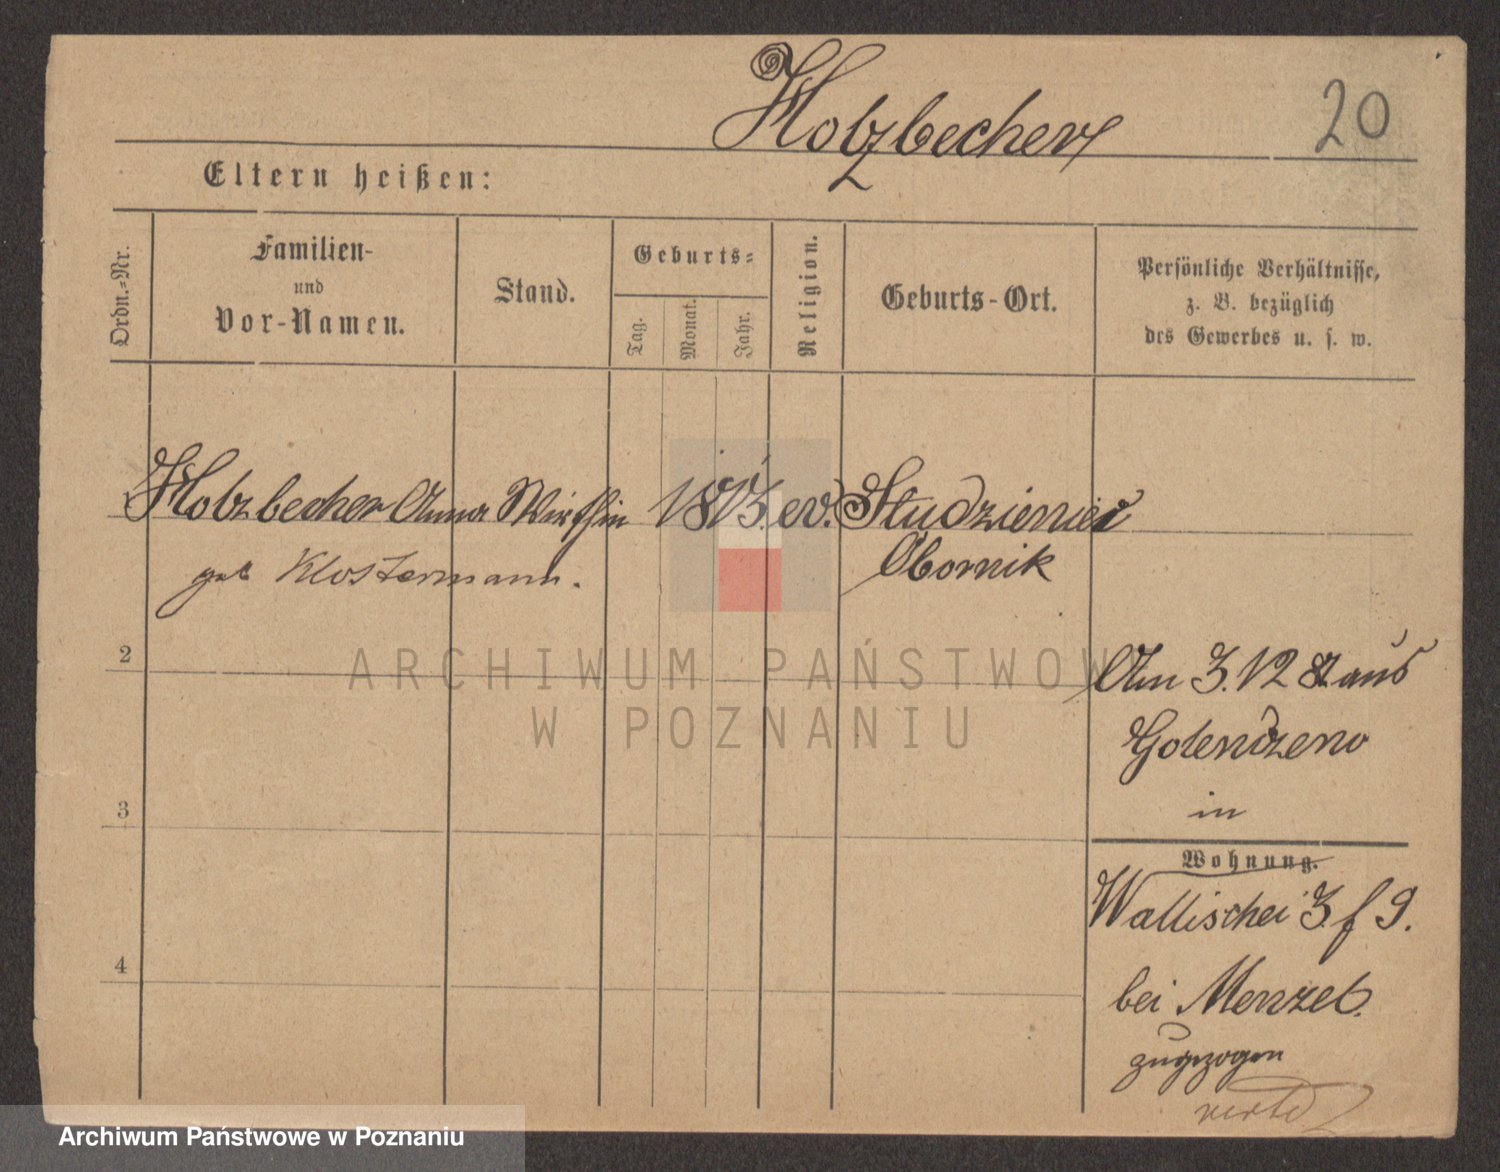 Holzbecher
20
Eltern heißen:
Ordn.-Nr.
Familien-
und
Vor-Namen.
Stand.
Geburts-
Tag.
Monat.
Jahr.
Religion.
Geburts-Ort.
Persönliche Verhältnisse,
z. B. bezüglich
des Gewerbes u. s. w.
Holzbecher Anna Wirthin 1813. ev. Studzieniec
geb Klostermann.
Obornik
2
ARCHIWUM PAŃSTWOWE
W POZNANIU
Am 3.12 aus
Golendzeno
in
3
Wohnung.
Wallischei 3 f 9.
4
bei Menzel.
zugezogen
Archiwum Państwowe w Poznaniu